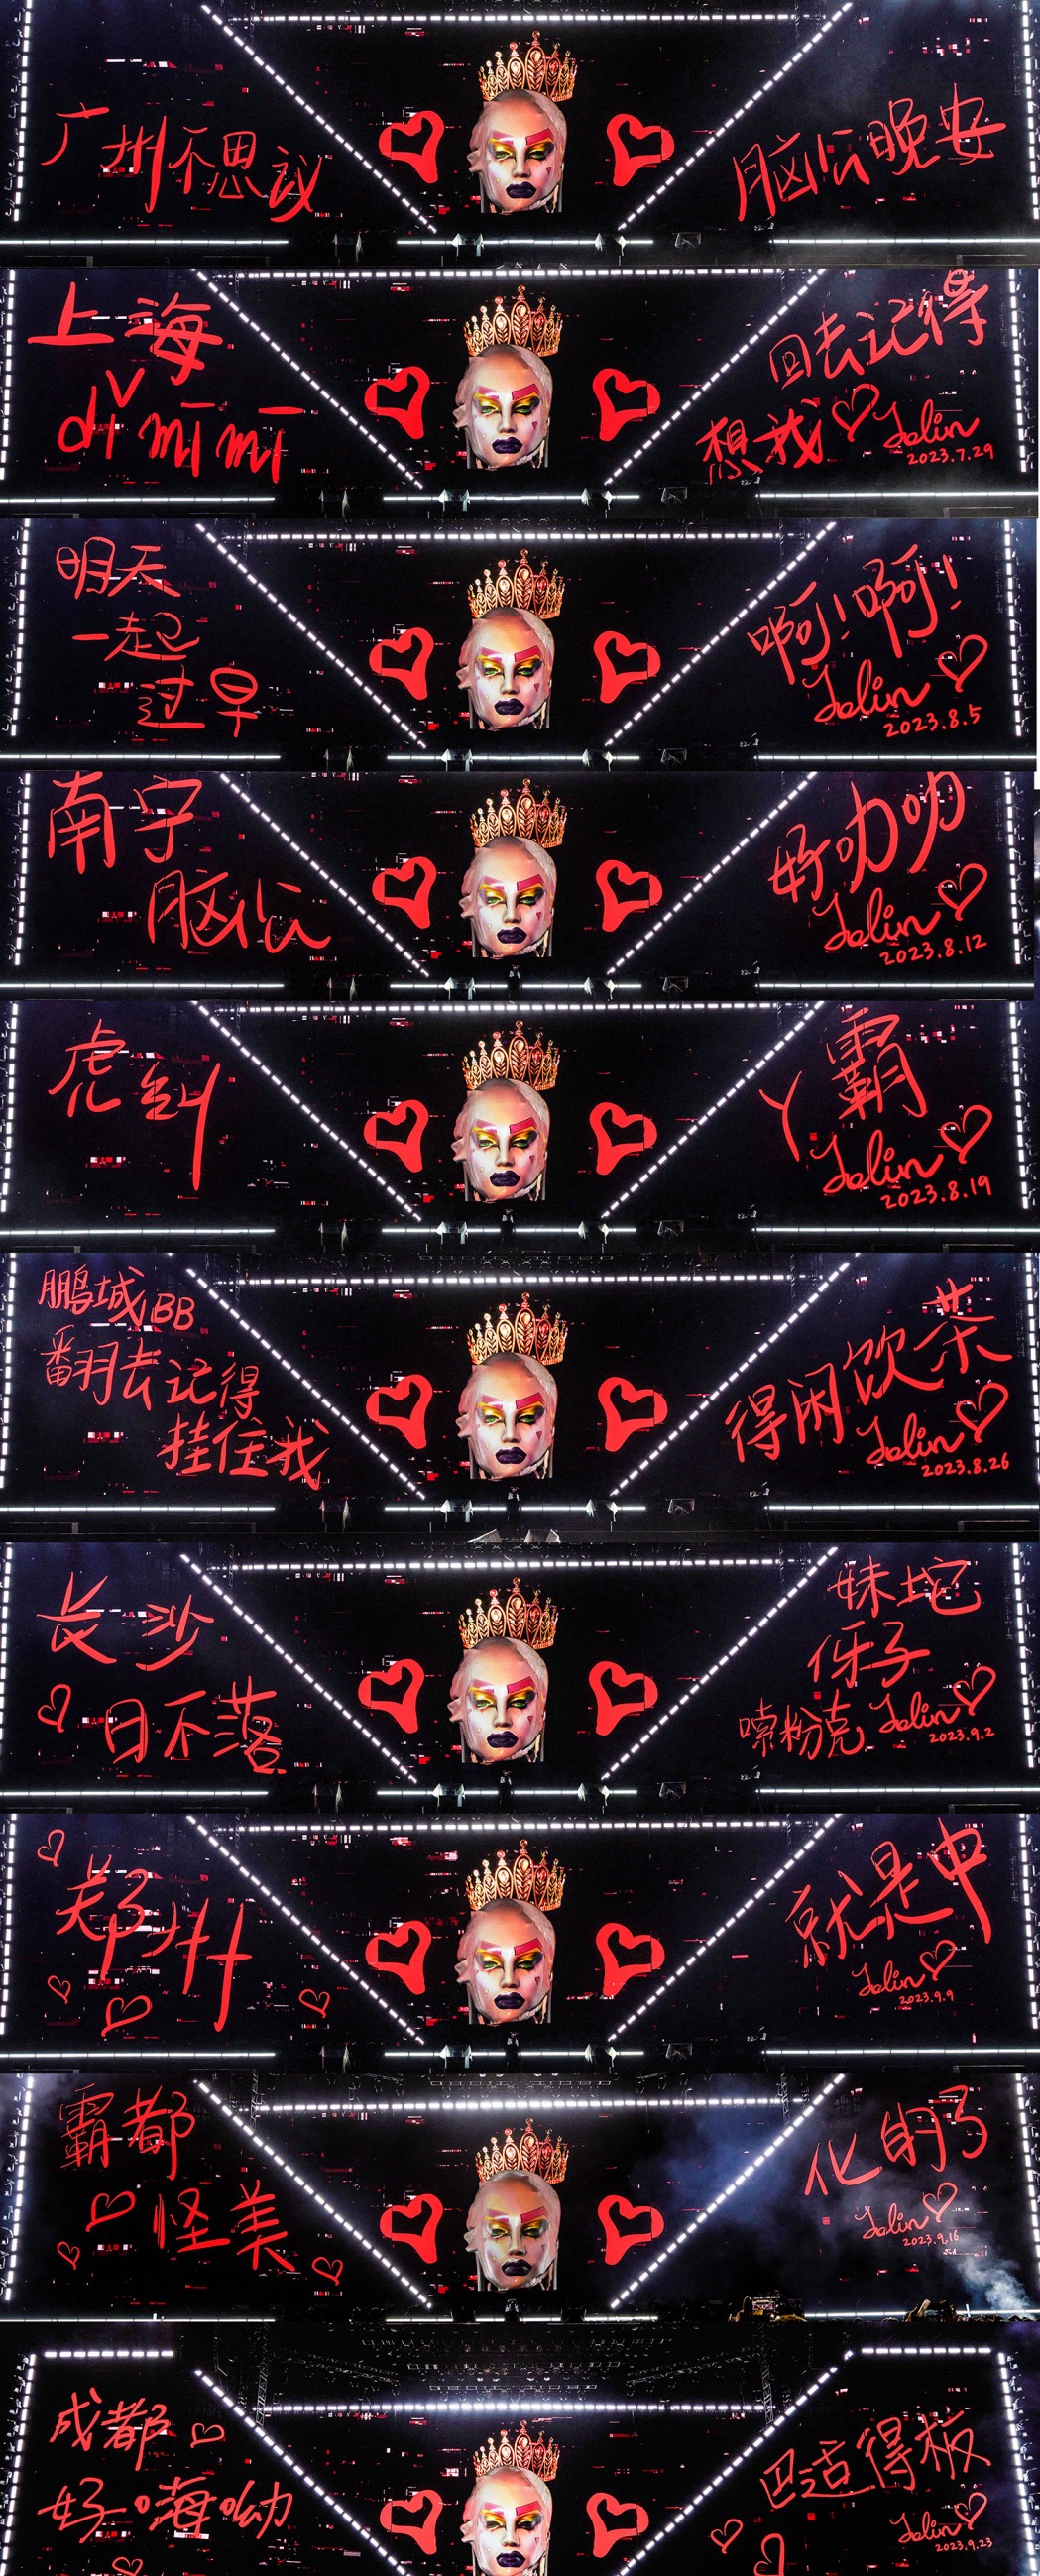 广州不思议
脑公晚安
上海
dǐ mī mī
回去记得
想我 Jolin
2023.7.29
明天
一起
过早
啊！啊！
Jolin
2023.8.5
南宁
脑公
好叻叻
Jolin
2023.8.12
虎纠
丫霸
Jolin
2023.8.19
鹏城BB
翻去记得
挂住我
得闲饮茶
Jolin
2023.8.26
长沙
日不落
妹坨
伢子
嗦粉克 Jolin
2023.9.2
郑州
就是中
Jolin
2023.9.9
霸都
怪美
化的了
Jolin
2023.9.16
成都
好嗨呦
巴适得板
Jolin
2023.9.23